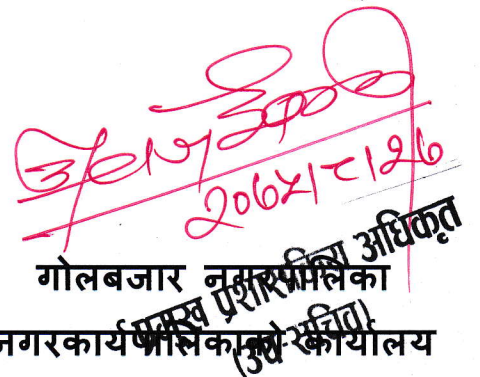 २०७५।८।२७
प्रमुख प्रशासकीय अधिकृत
(उप-सचिव)
गोलबजार नगरपालिका
नगरकार्यपालिकाको कार्यालय